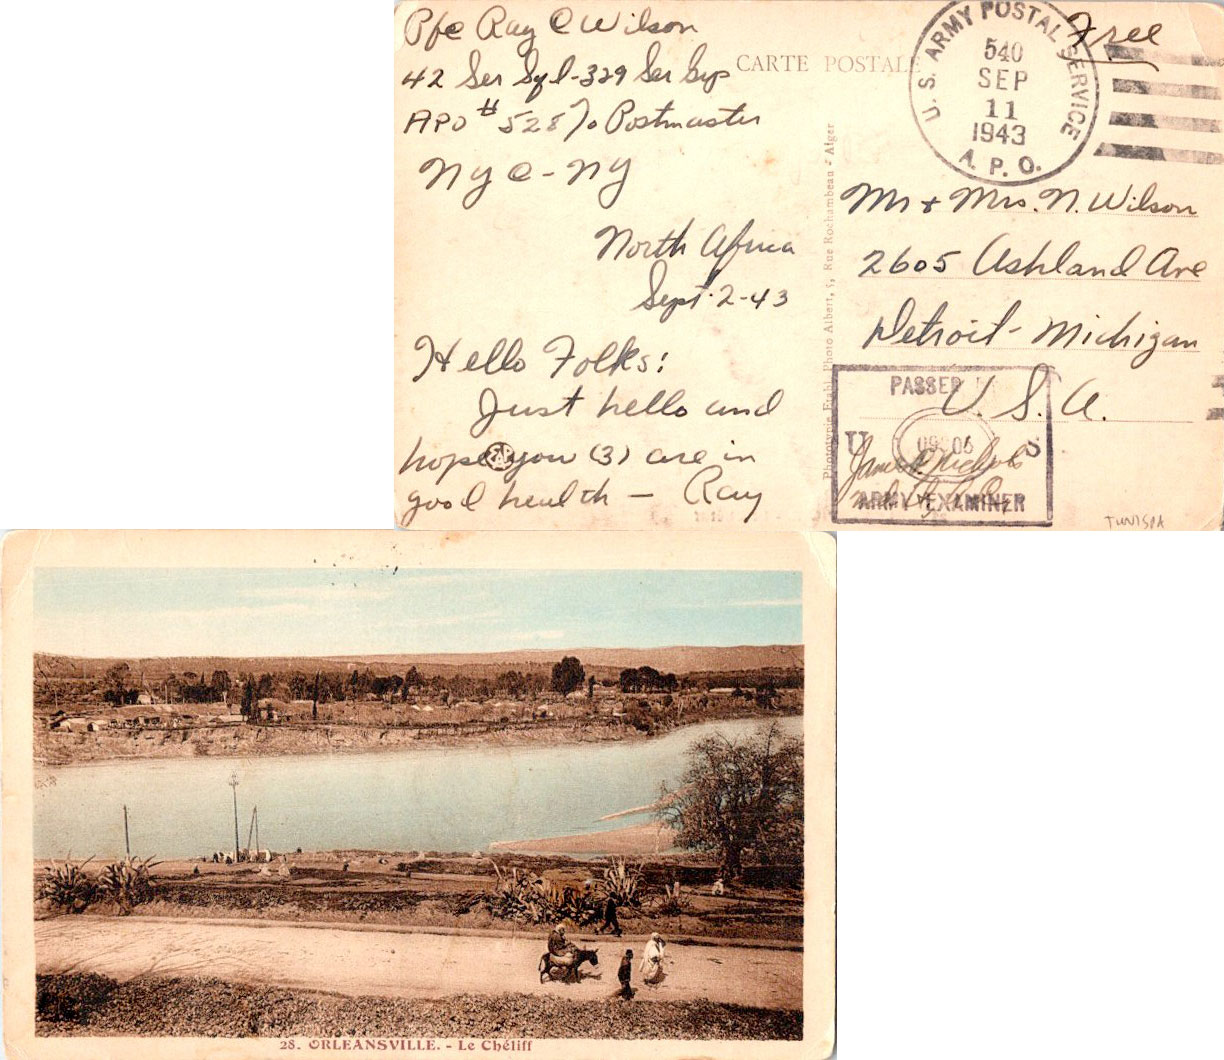 Pfc Ray C Wilson
42 Ser Sqd-329 Ser Grp
APO # 528 % Postmaster
NYC-NY
North Africa
Sept. 2-43
Hello Folks:
Just hello and
hope you (3) are in
good health — Ray
CARTE POSTALE
Phototypie Etabl. Photo Albert, 5, Rue Rochambeau - Alger
Free
U. S. ARMY POSTAL SERVICE
540
SEP
11
1943
A. P. O.
Mr & Mrs. N. Wilson
2605 Ashland Ave
Detroit - Michigan
U. S. A.
PASSED
U S
06
James Nichols
ARMY EXAMINER
TUNISIA
28. ORLEANSVILLE. - Le Chéliff